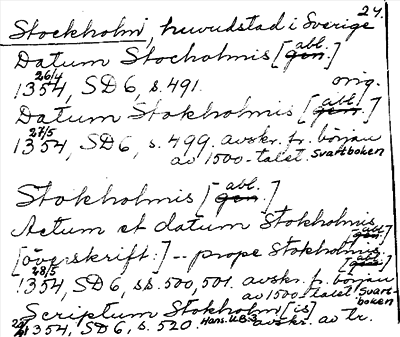 24.
Stockholm, huvudstad i Sverige
Datum Stocholmis [abl. gen.]
1354 26/4, SD 6, s. 491. orig.
Datum Stokholmis [abl. gen.]
1354 27/5, SD 6, s. 499. avskr. fr. början
av 1500-talet. Svartboken
Stokholmis [abl. gen.]
Actum et datum Stokholmis [abl. gen.]
[överskrift:] -- prope Stokholmis [abl. gen.]
1354 28/5, SD 6, ss. 500, 501. avskr. fr. början
av 1500-talet Svart-
boken
Scriptum Stokholm [is]
1354, SD 6, s. 520. Hans. U.B. 3 avskr. av tr.